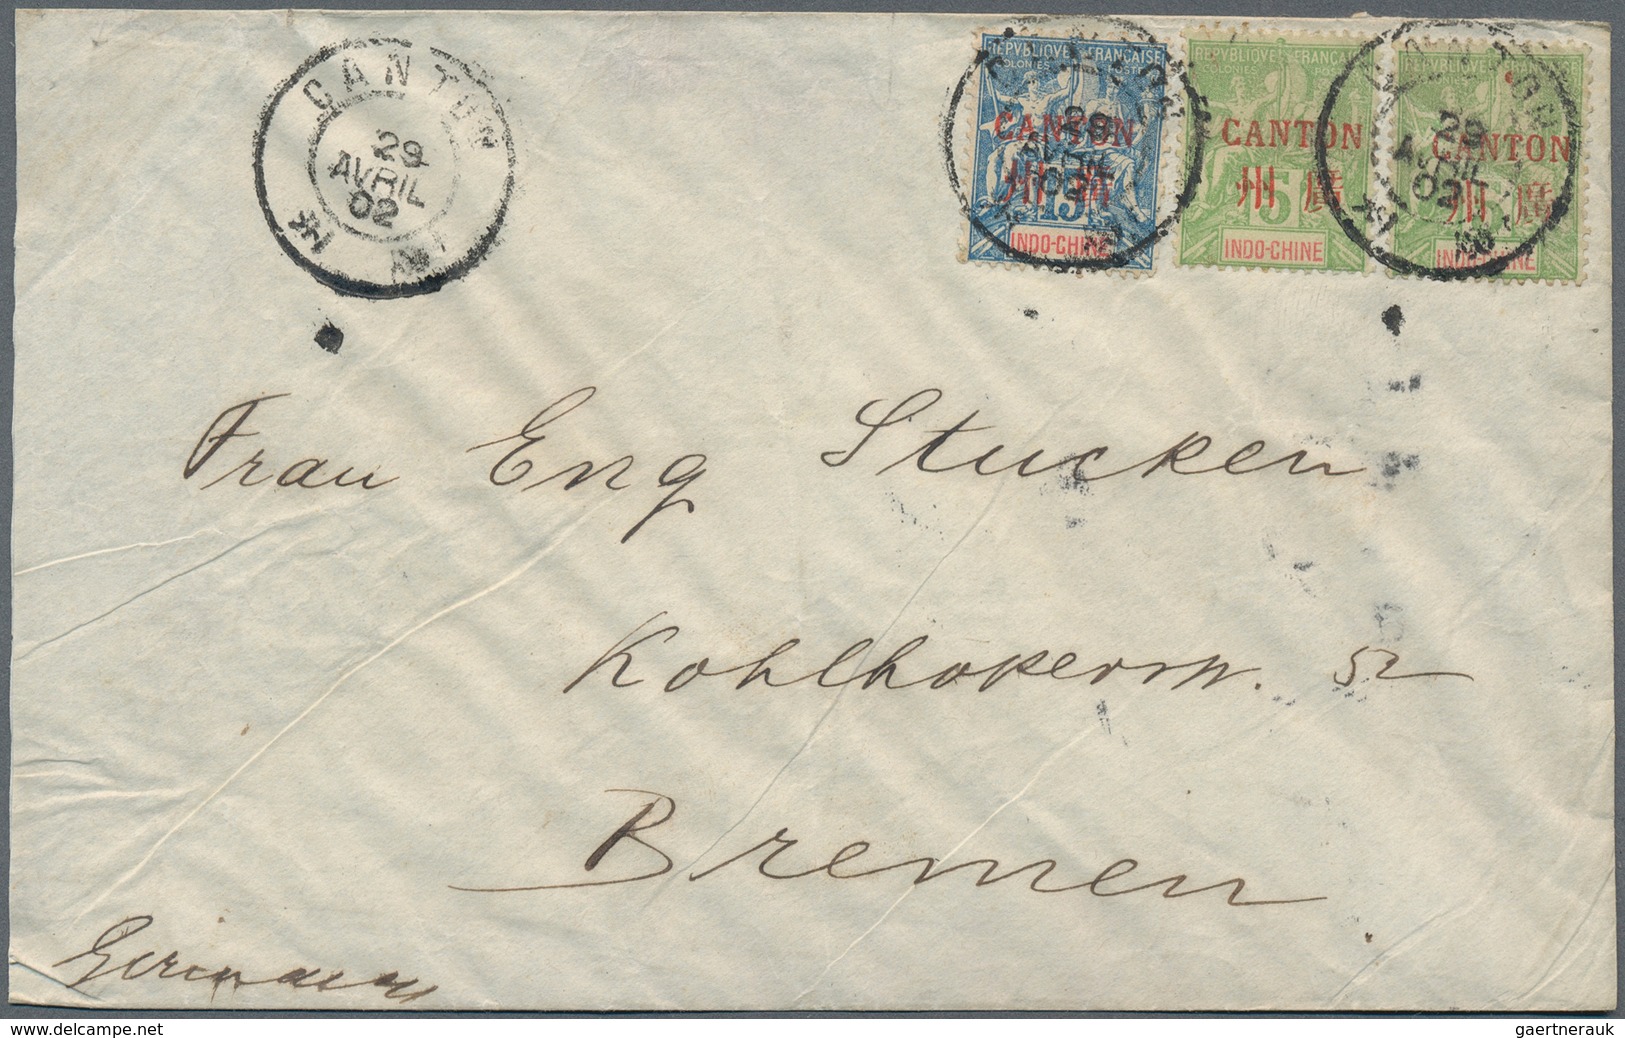 CANTON
29
AVRIL
02
REPUBLIQUE FRANÇAISE
COLONIES POSTES
CANTON
州廣
15
INDO-CHINE
29
AVRIL
02
REPUBLIQUE FRANÇAISE
COLONIES POSTES
CANTON
州廣
5
INDO-CHINE
REPUBLIQUE FRANÇAISE
COLONIES
CANTON
州廣
INDO-CHINE
CANTON
29
AVRIL
02
Frau Eng Stucken
Kohlhökerstr. 52
Bremen
Germany
www.delcampe.net
gaertnerauk